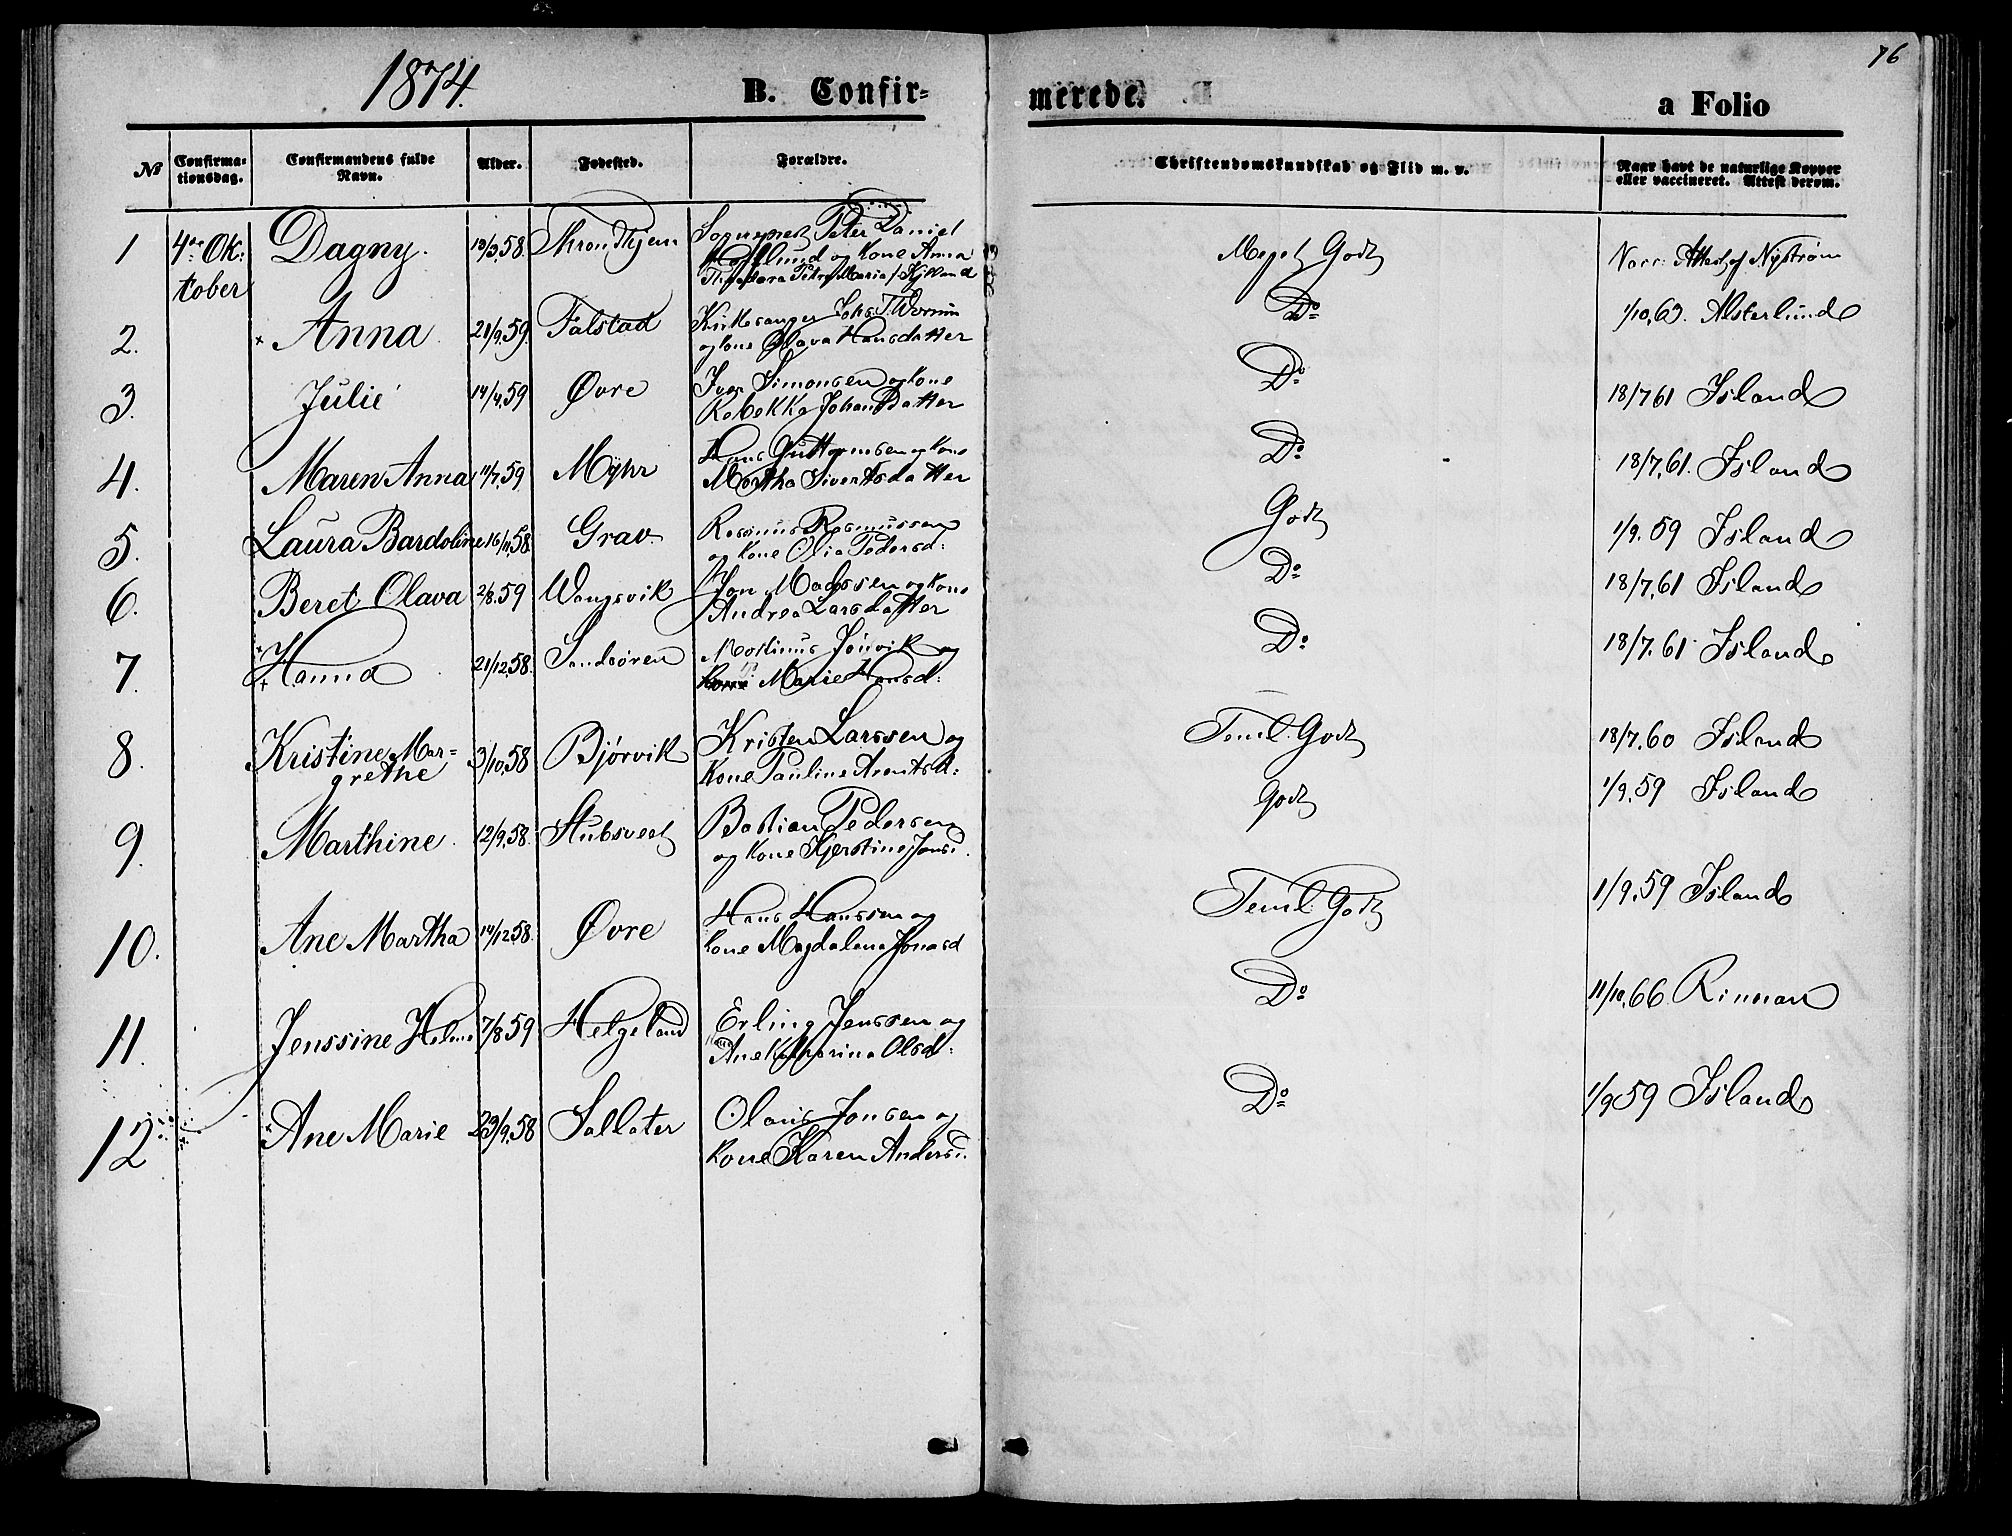 1874.
B. Confir-
merede.
a Folio
76
No
Confirma-
tionsdag.
Confirmandens fulde
Navn.
Alder.
Fødested.
Forældre.
Christendomskundskab og Flid m. v.
Naar havt de naturlige Kopper
eller vaccineret. Attest derom.
1 4de Ok: Dagny. 13/3.58 Throndhjem Sognepræst Peter Daniel
tober og Kone Anna
Petra Maria
Meget Godt Attest af Nystrøm
2. Anna 21/9.59 Falstad Kirkesanger Johs T. Wernun
og kone Olava Hansdatter
Do 1/10,63. Alsterlund
3. Julie 14/4.59 Øvre Iver Simonsen og Kone
Rebekka Johansdatter
Do 18/7 61 Island
4. Maren Anna 11/7.59. Myhr Hans Guttormsen og Kone
Martha Sivertsdatter
Do 18/7.61. Island
5. Laura Bardoline 16/11 58 Grav Rasmus Rasmussen
og Kone Olia Pedersd:
Godt 1/9.59 Island
6. Beret Olava 2/8.59 Wangsvik Jon Madssen og Kone
Andrea Larsdatter
Do 18/7.61 Island
7. Hanna 21/12.58. Sandsøren Martinus Jønvik og
Marie Hansd:
Do 18/7.61 Island
8. Kristine Mar= 3/10.58 Bjørvik Kristen Larssen og
grethe Kone Pauline Arentsd:
Teml. Godt 18/7.60 Island
9. Marthine 12/9.58. Stubsveet Bastian Pedersen
og Kone Kjerstine Jonsd.
Godt 1/9.59 Island
10. Ane Martha 14/12 58. Øvre Hans Hanssen og
Kone Magdalena Jonasd
Teml. Godt 1/9.59 Island
11. Jenssine 7/8 59 Helgeland Erling Jenssen og
Ane Katharina Olsd:
Do 11/10.66 Rinnan
12 Ane Marie 29/9.58 Sallater Olaus Jonsen og
Kone Karen Andersd.
Do 1/9 59 Island